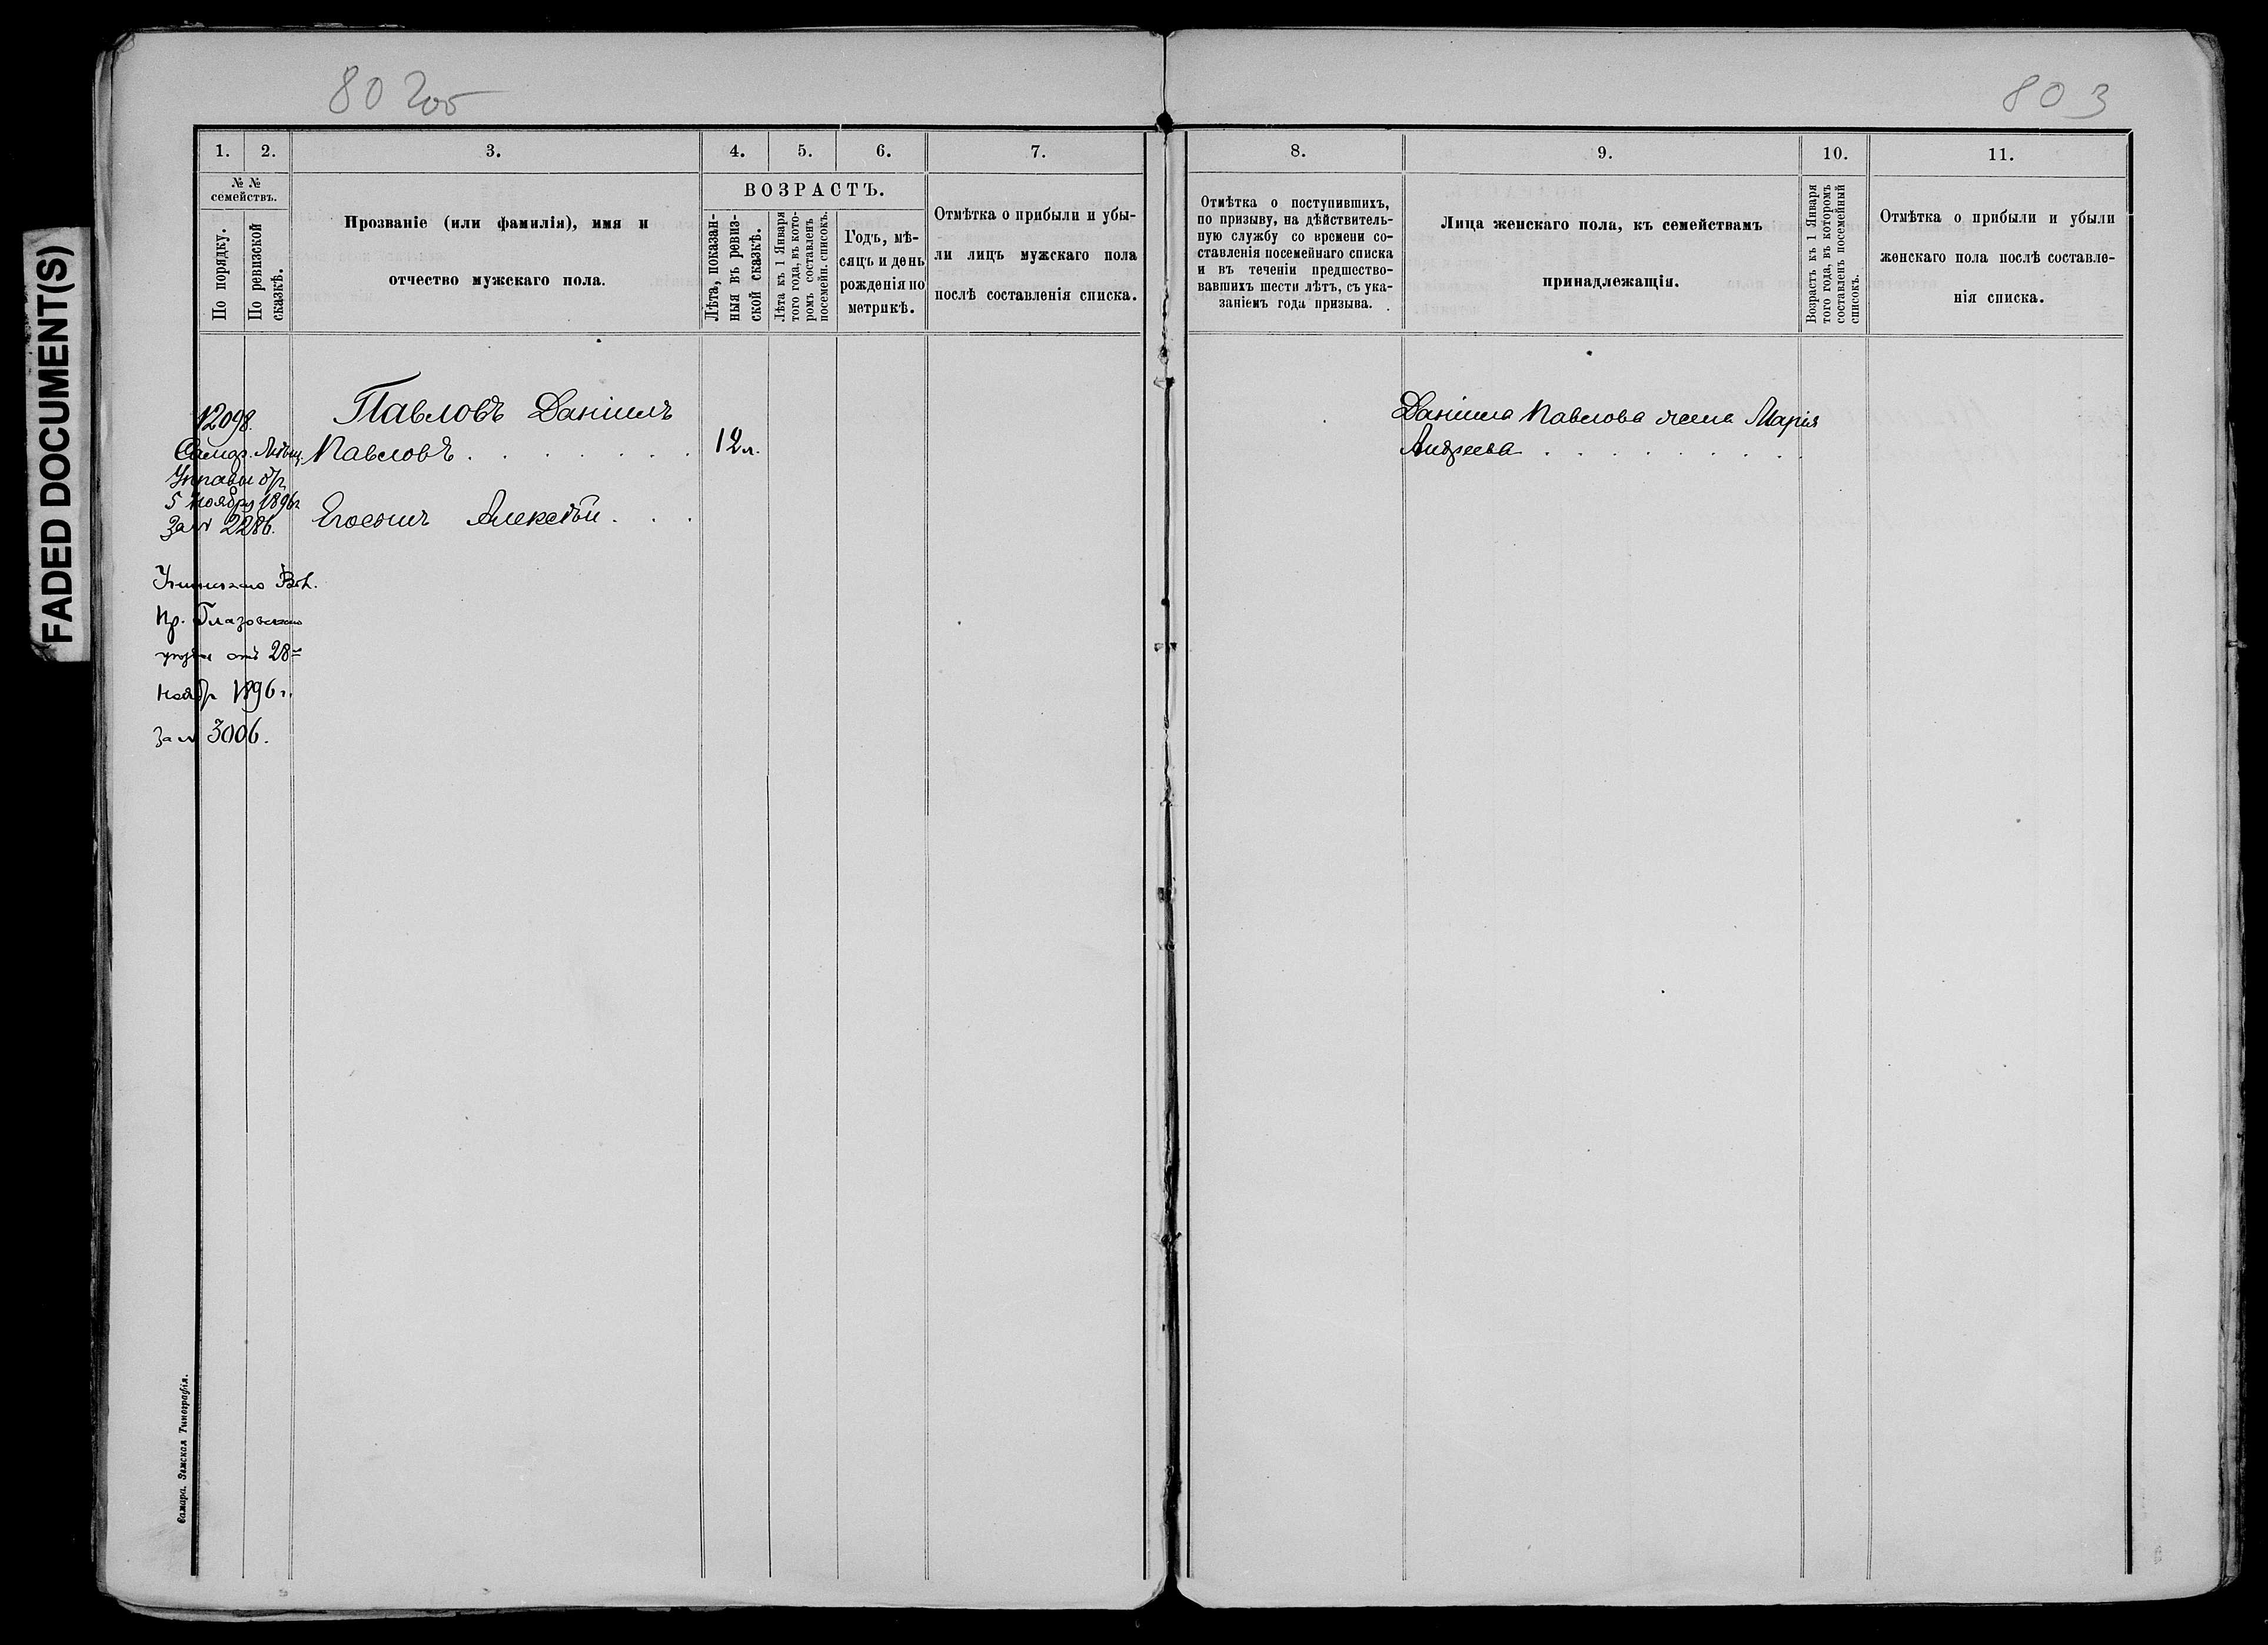 FADED DOCUMENT(S)
802об
803
1.
2.
3.
4.
5.
6.
7.
№ №
семействъ.
По порядку.
По ревизской
сказкѣ.
Прозваніе (или фамилія), имя и
отчество мужскаго пола.
ВОЗРАСТЪ.
Лѣта, показан-
ныя въ ревиз-
ской сказкѣ.
Лѣта къ 1 Января
того года, въ кото-
ромъ составленъ
посемейн. списокъ.
Годъ, мѣ-
сяцъ и день
рожденія по
метрикѣ.
Отмѣтка о прибыли и убы-
ли лицъ мужскаго пола
послѣ составленія списка.
12098.
Управы
5 Ноября 1896г
За № 2286.
Пр. Глазовскаго
отъ 28
Ноябр 1896 г.
За № 3006.
Павловъ Даніилъ
Павловъ . . . . . . .
12 л.
Его сынъ Алексѣй . . .
Самара. Земская Типографія.
8.
9.
10.
11.
Отмѣтка о поступившихъ,
по призыву, на дѣйствитель-
ную службу со времени со-
ставленія посемейнаго списка
и въ теченіи предшество-
вавшихъ шести лѣтъ, съ ука-
заніемъ года призыва.
Лица женскаго пола, къ семействамъ
принадлежащія.
Возрастъ къ 1 Января
того года, въ которомъ
составленъ посемейный
списокъ.
Отмѣтка о прибыли и убыли
женскаго пола послѣ составле-
нія списка.
Даніила Павлова жена Марія
Андреева . . . . . . . .